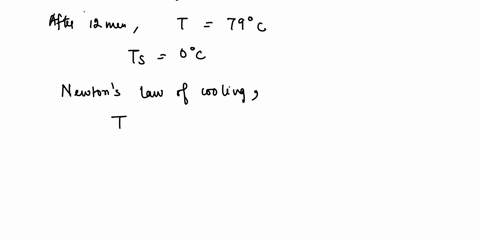 After 12 men, T = 79°C
Ts = 0°C
Newton's law of cooling,
T